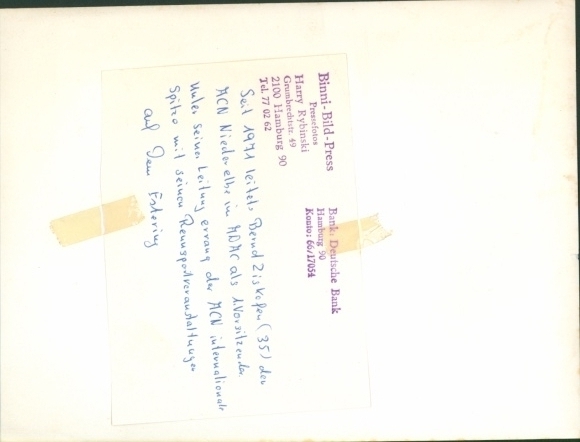 Binni-Bild-Press
Pressefotos
Harry Rybinski
Grumbrechtstr. 49
2100 Hamburg 90
Tel. 77 02 62
Bank: Deutsche Bank
Hamburg 90
Konto: 66/17054
Seit 1971 leitet Bernd Ziskofen (35) den
MCN Niederelbe im ADAC als 1. Vorsitzender.
Unter seiner Leitung errang der MCN internationale
Spitze mit seinen Rennsportveranstaltungen
auf dem Estering